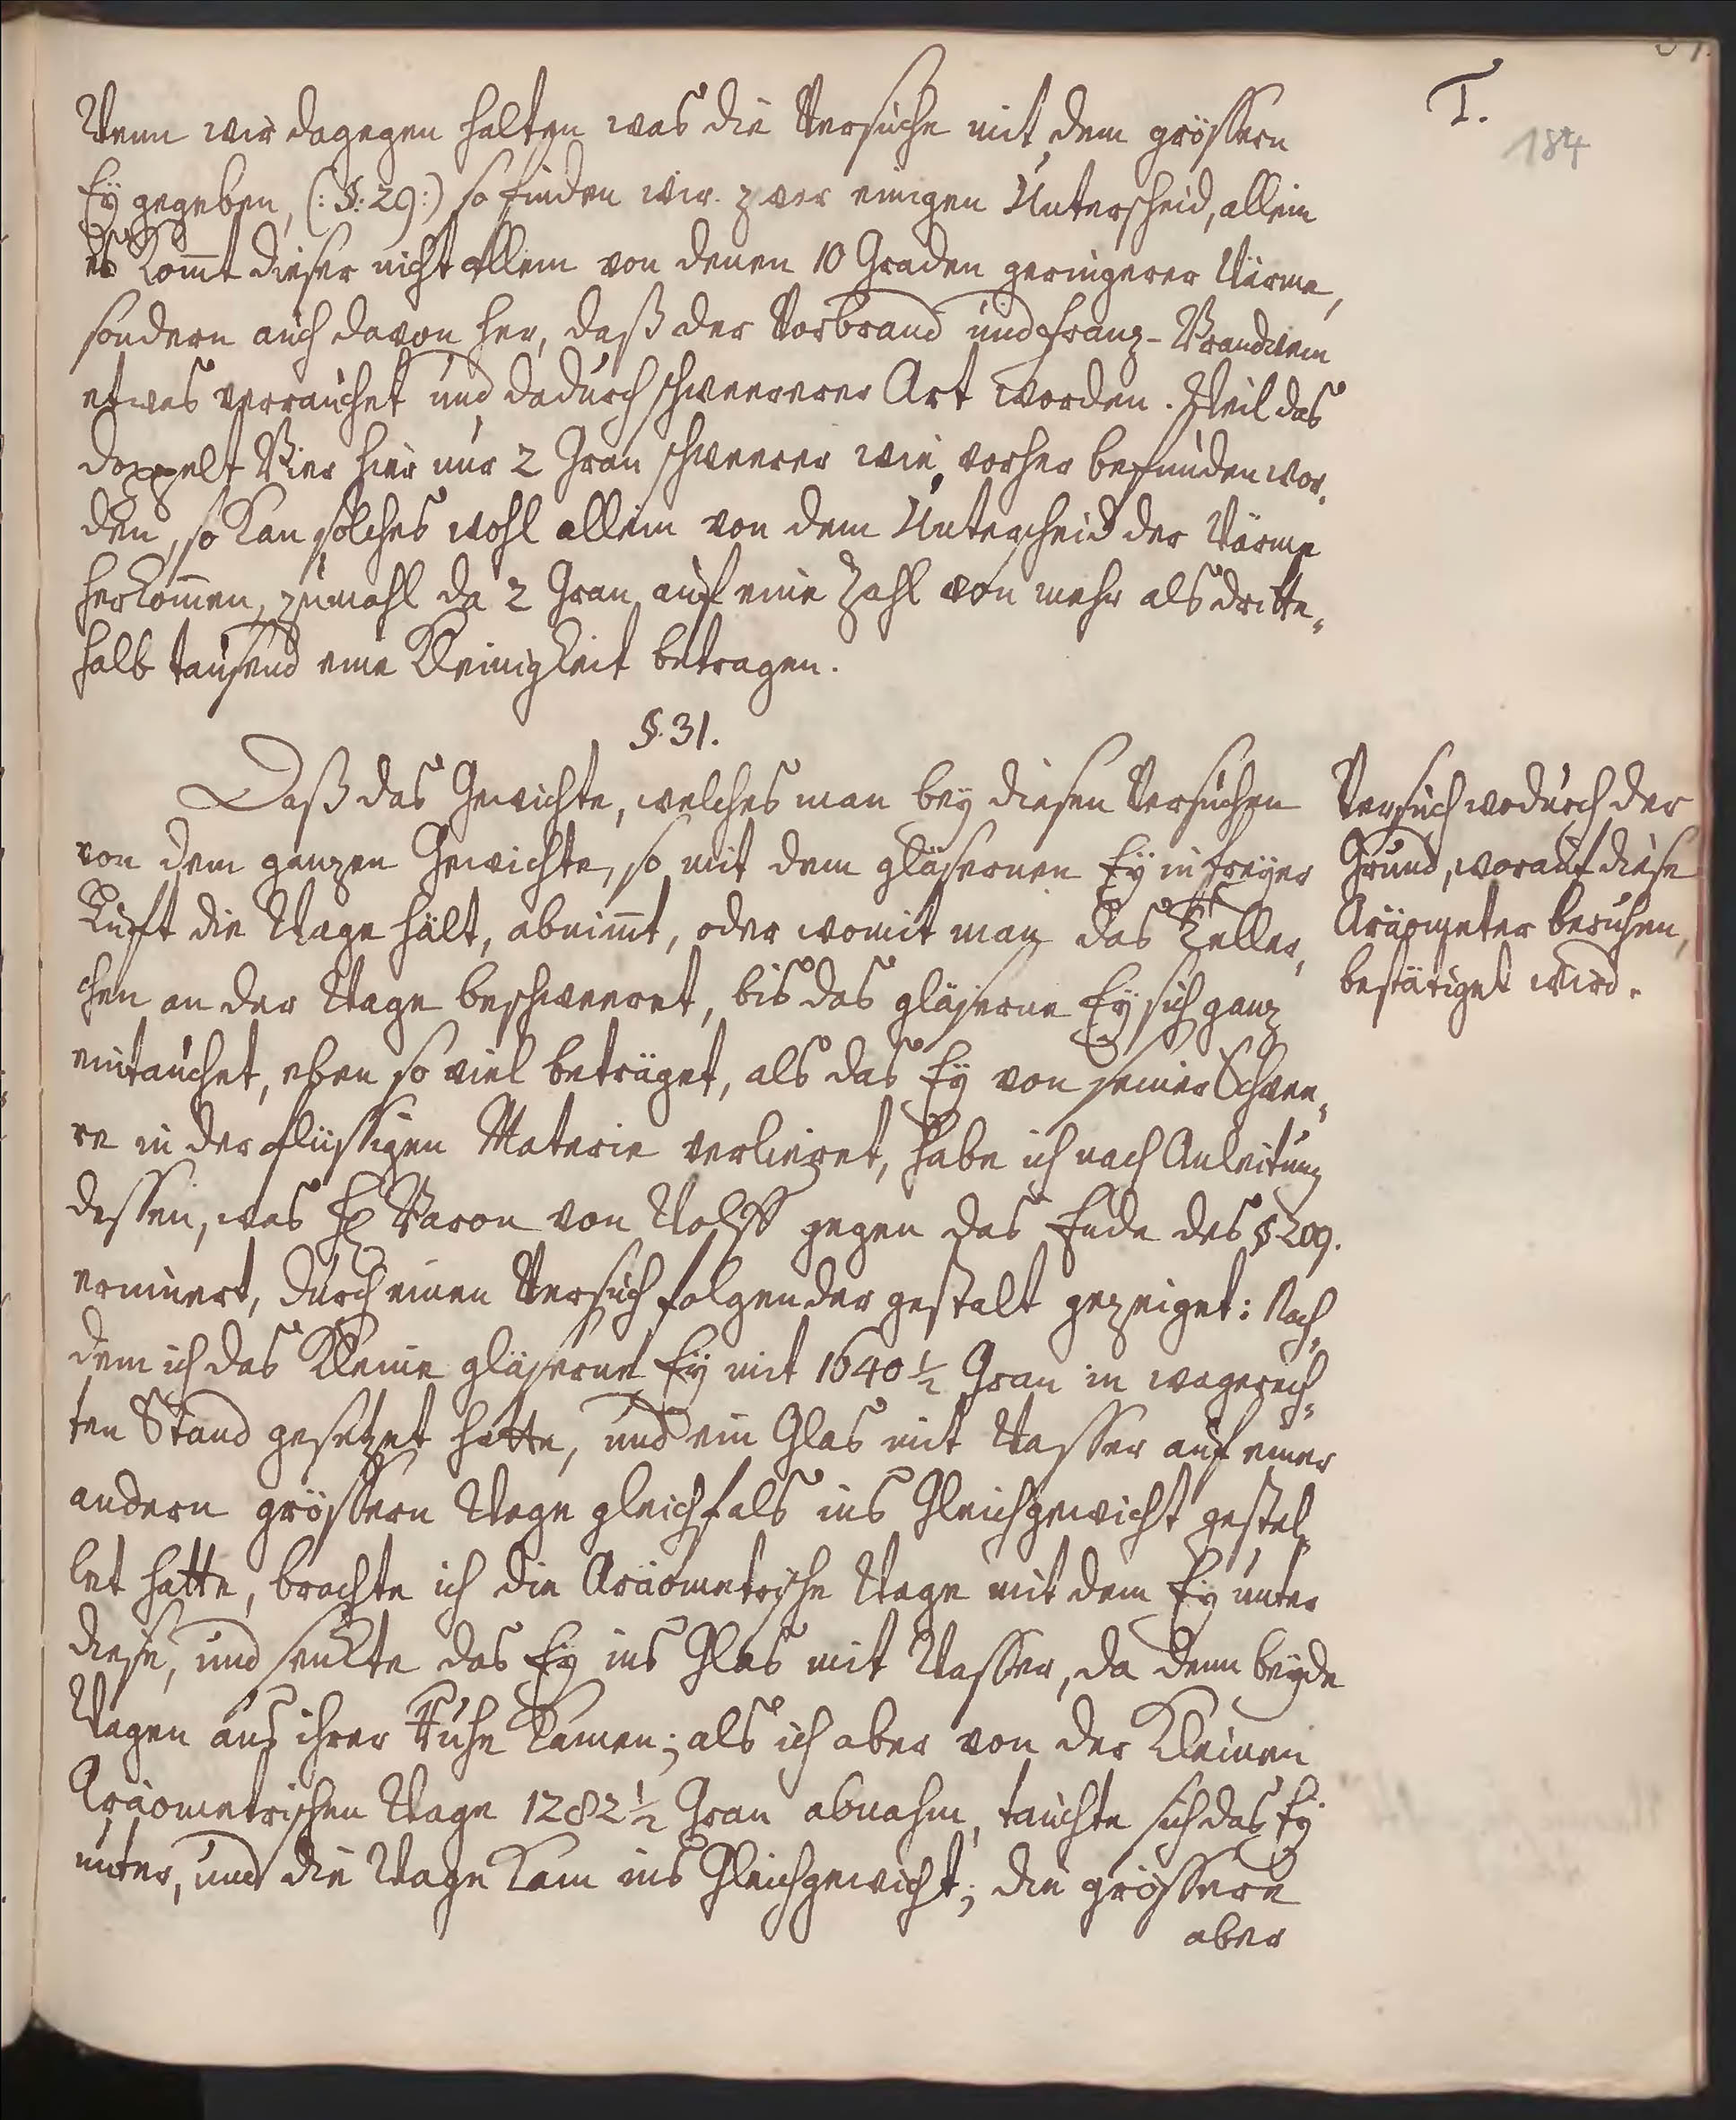 T.
184
Wenn wir dagegen halten was die Versuche mit dem grössern
Eÿ gegeben, (: §. 29 :) so finden wir zwar einigen Unterscheid, allein
es kom̄t dieser nicht allein von denen 10 Graden geringerer Wärme,
sondern auch davon her, daß der Vorbrand und Franz-Brandwein
etwas verrauchet und dadurch schweererer Art worden. Weil das
doppelt Bier hier nur 2 Gran schweerer wie vorher befunden wor-
den, so kan solches wohl allein von dem Unterscheid der Wärme
herkom̄en, zumahl da 2 Gran auf eine Zahl von mehr als dritte-
halb tausend eine Kleinigkeit betragen.
§. 31.
Daß das Gewichte, welches man bey diesen Versuchen
von dem ganzen Gewichte, so mit dem gläsernen Eÿ in freyer
Luft die Wage hält, abnim̄t, oder womit man das Teller-
chen an der Wage beschweeret, bis das gläserne Eÿ sich ganz
eintauchet, eben so viel beträget, als das Eÿ von seiner Schwee-
re in der flüssigen Materie verlieret, habe ich nach Anleitung
dessen, was H. Baron von Wolff gegen das Ende des § 209.
erinnert, durch einen Versuch folgender gestalt gezeiget: Nach-
dem ich das kleine gläserne Eÿ mit 1640 ½ Gran in wagerech-
ten Stand gesetzet hatte, und ein Glas mit Wasser auf einer
andern grössern Wage gleichfals ins Gleichgewicht gestel-
let hatte, brachte ich die Aräometrische Wage mit dem Eÿ unter
diese, und senkte das Eÿ ins Glas mit Wasser, da denn beyde
Wagen aus ihrer Ruhe kamen; als ich aber von der kleinen
Aräometrischen Wage 1282 ½ Gran abnahm, tauchte sich das Eÿ
unter, und die Wage kam ins Gleichgewicht; die grössere
aber
Versuch wodurch der
Grund, worauf diese
Aräometer beruhen,
bestätiget wird.